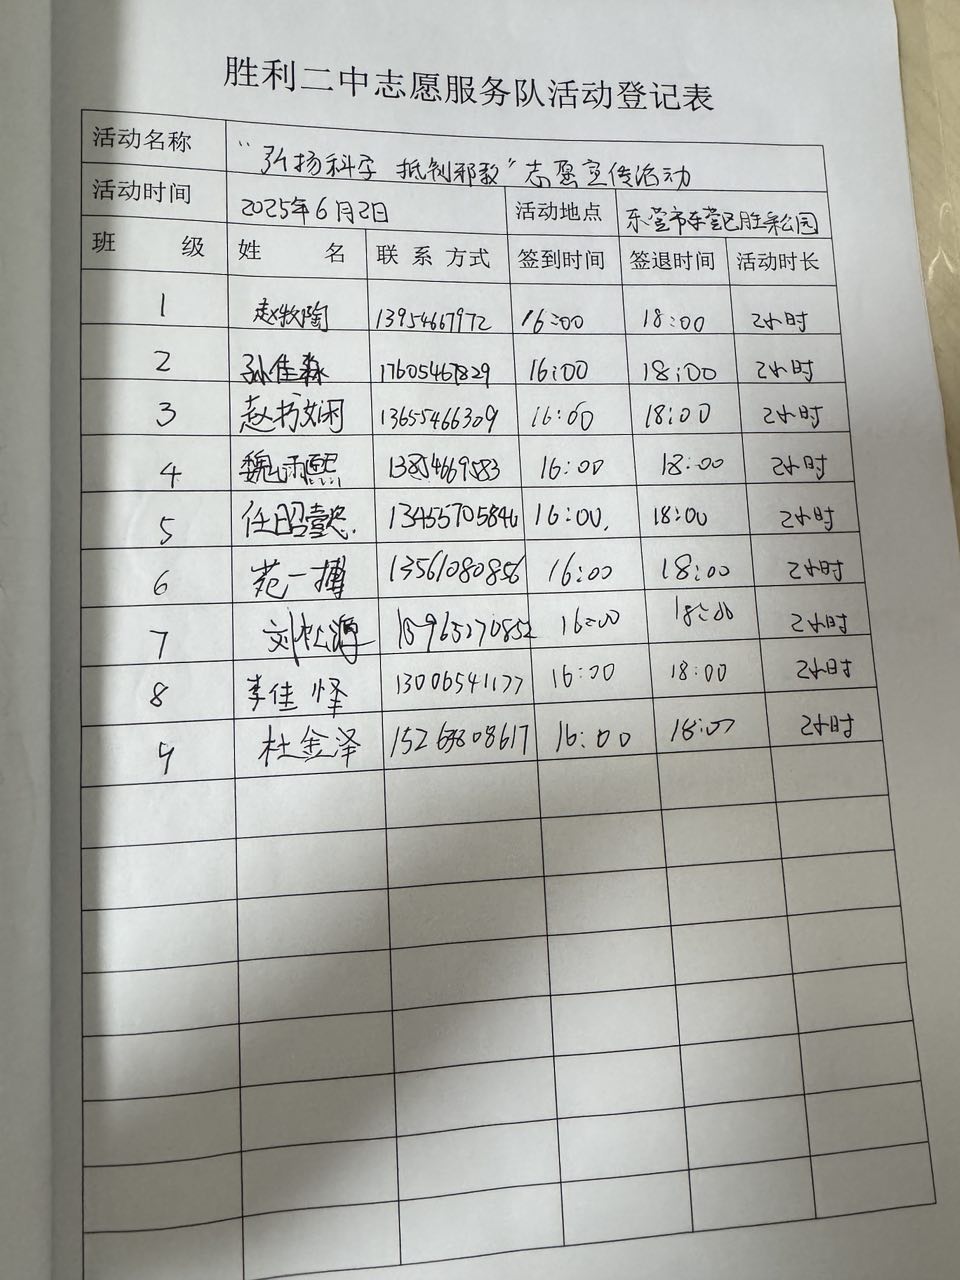 胜利二中志愿服务队活动登记表
活动名称 “弘扬科学 抵制邪教”志愿宣传活动
活动时间 2025年6月2日 活动地点 东营市东营区胜采公园
班 级 姓 名 联 系 方式 签到时间 签退时间 活动时长
1 赵牧陶 13954667972 16:00 18:00 2小时
2 孙佳森 17605467829 16:00 18:00 2小时
3 赵书娴 13655466309 16:00 18:00 2小时
4 魏雨熙 13854669583 16:00 18:00 2小时
5 任昭懿 13455705846 16:00 18:00 2小时
6 苑一搏 13561080856 16:00 18:00 2小时
7 刘松源 15965270852 16:00 18:00 2小时
8 李佳怿 13006541177 16:00 18:00 2小时
9 杜金泽 16:00 18:00 2小时